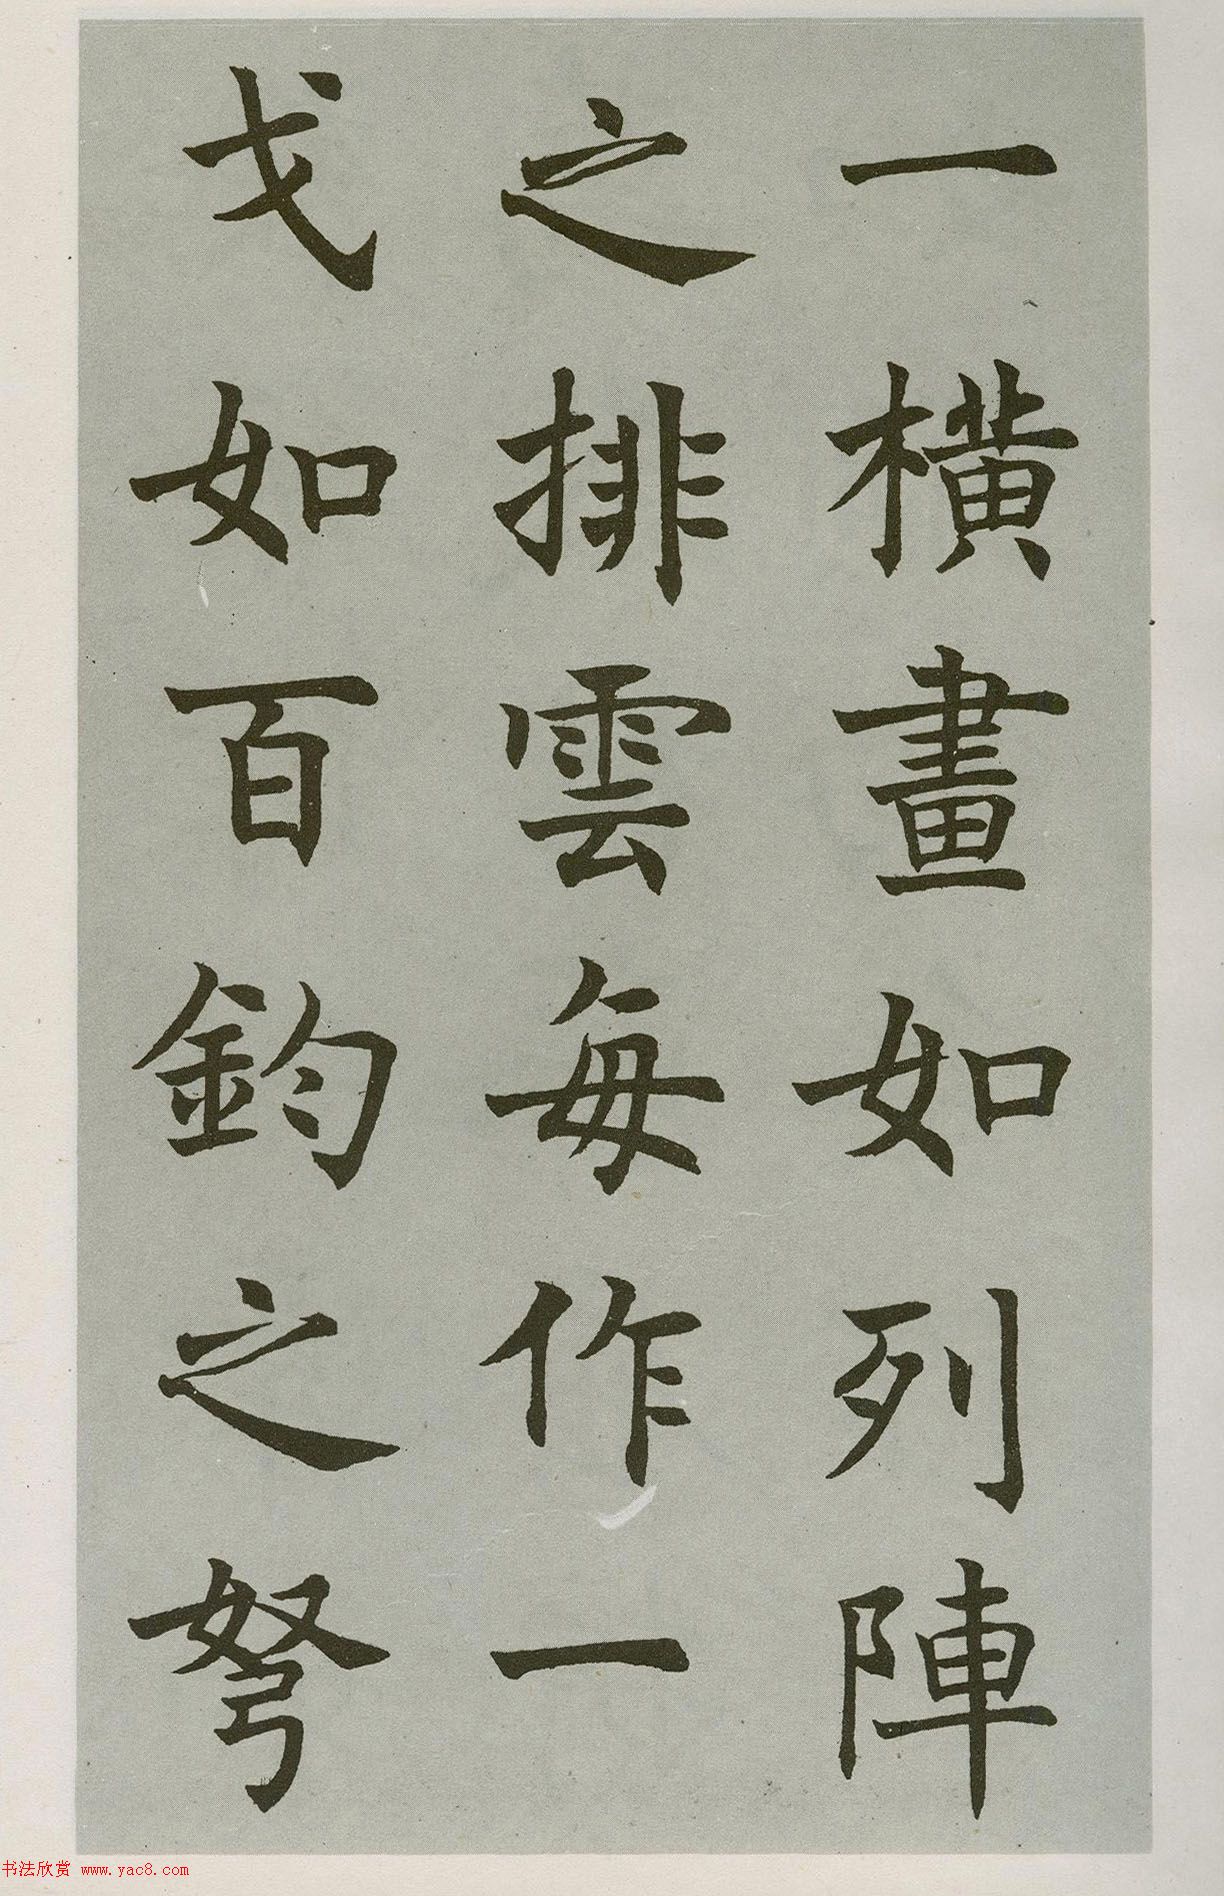 一橫畫如列陣
之排雲每作一
戈如百鈞之弩
书法欣赏 www.yac8.com